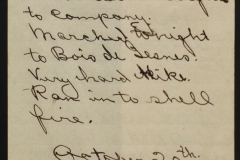 to company.
Marched tonight
to Bois de Sesnes.
Very hard hike.
Ran in to shell
fire.
October 2th.